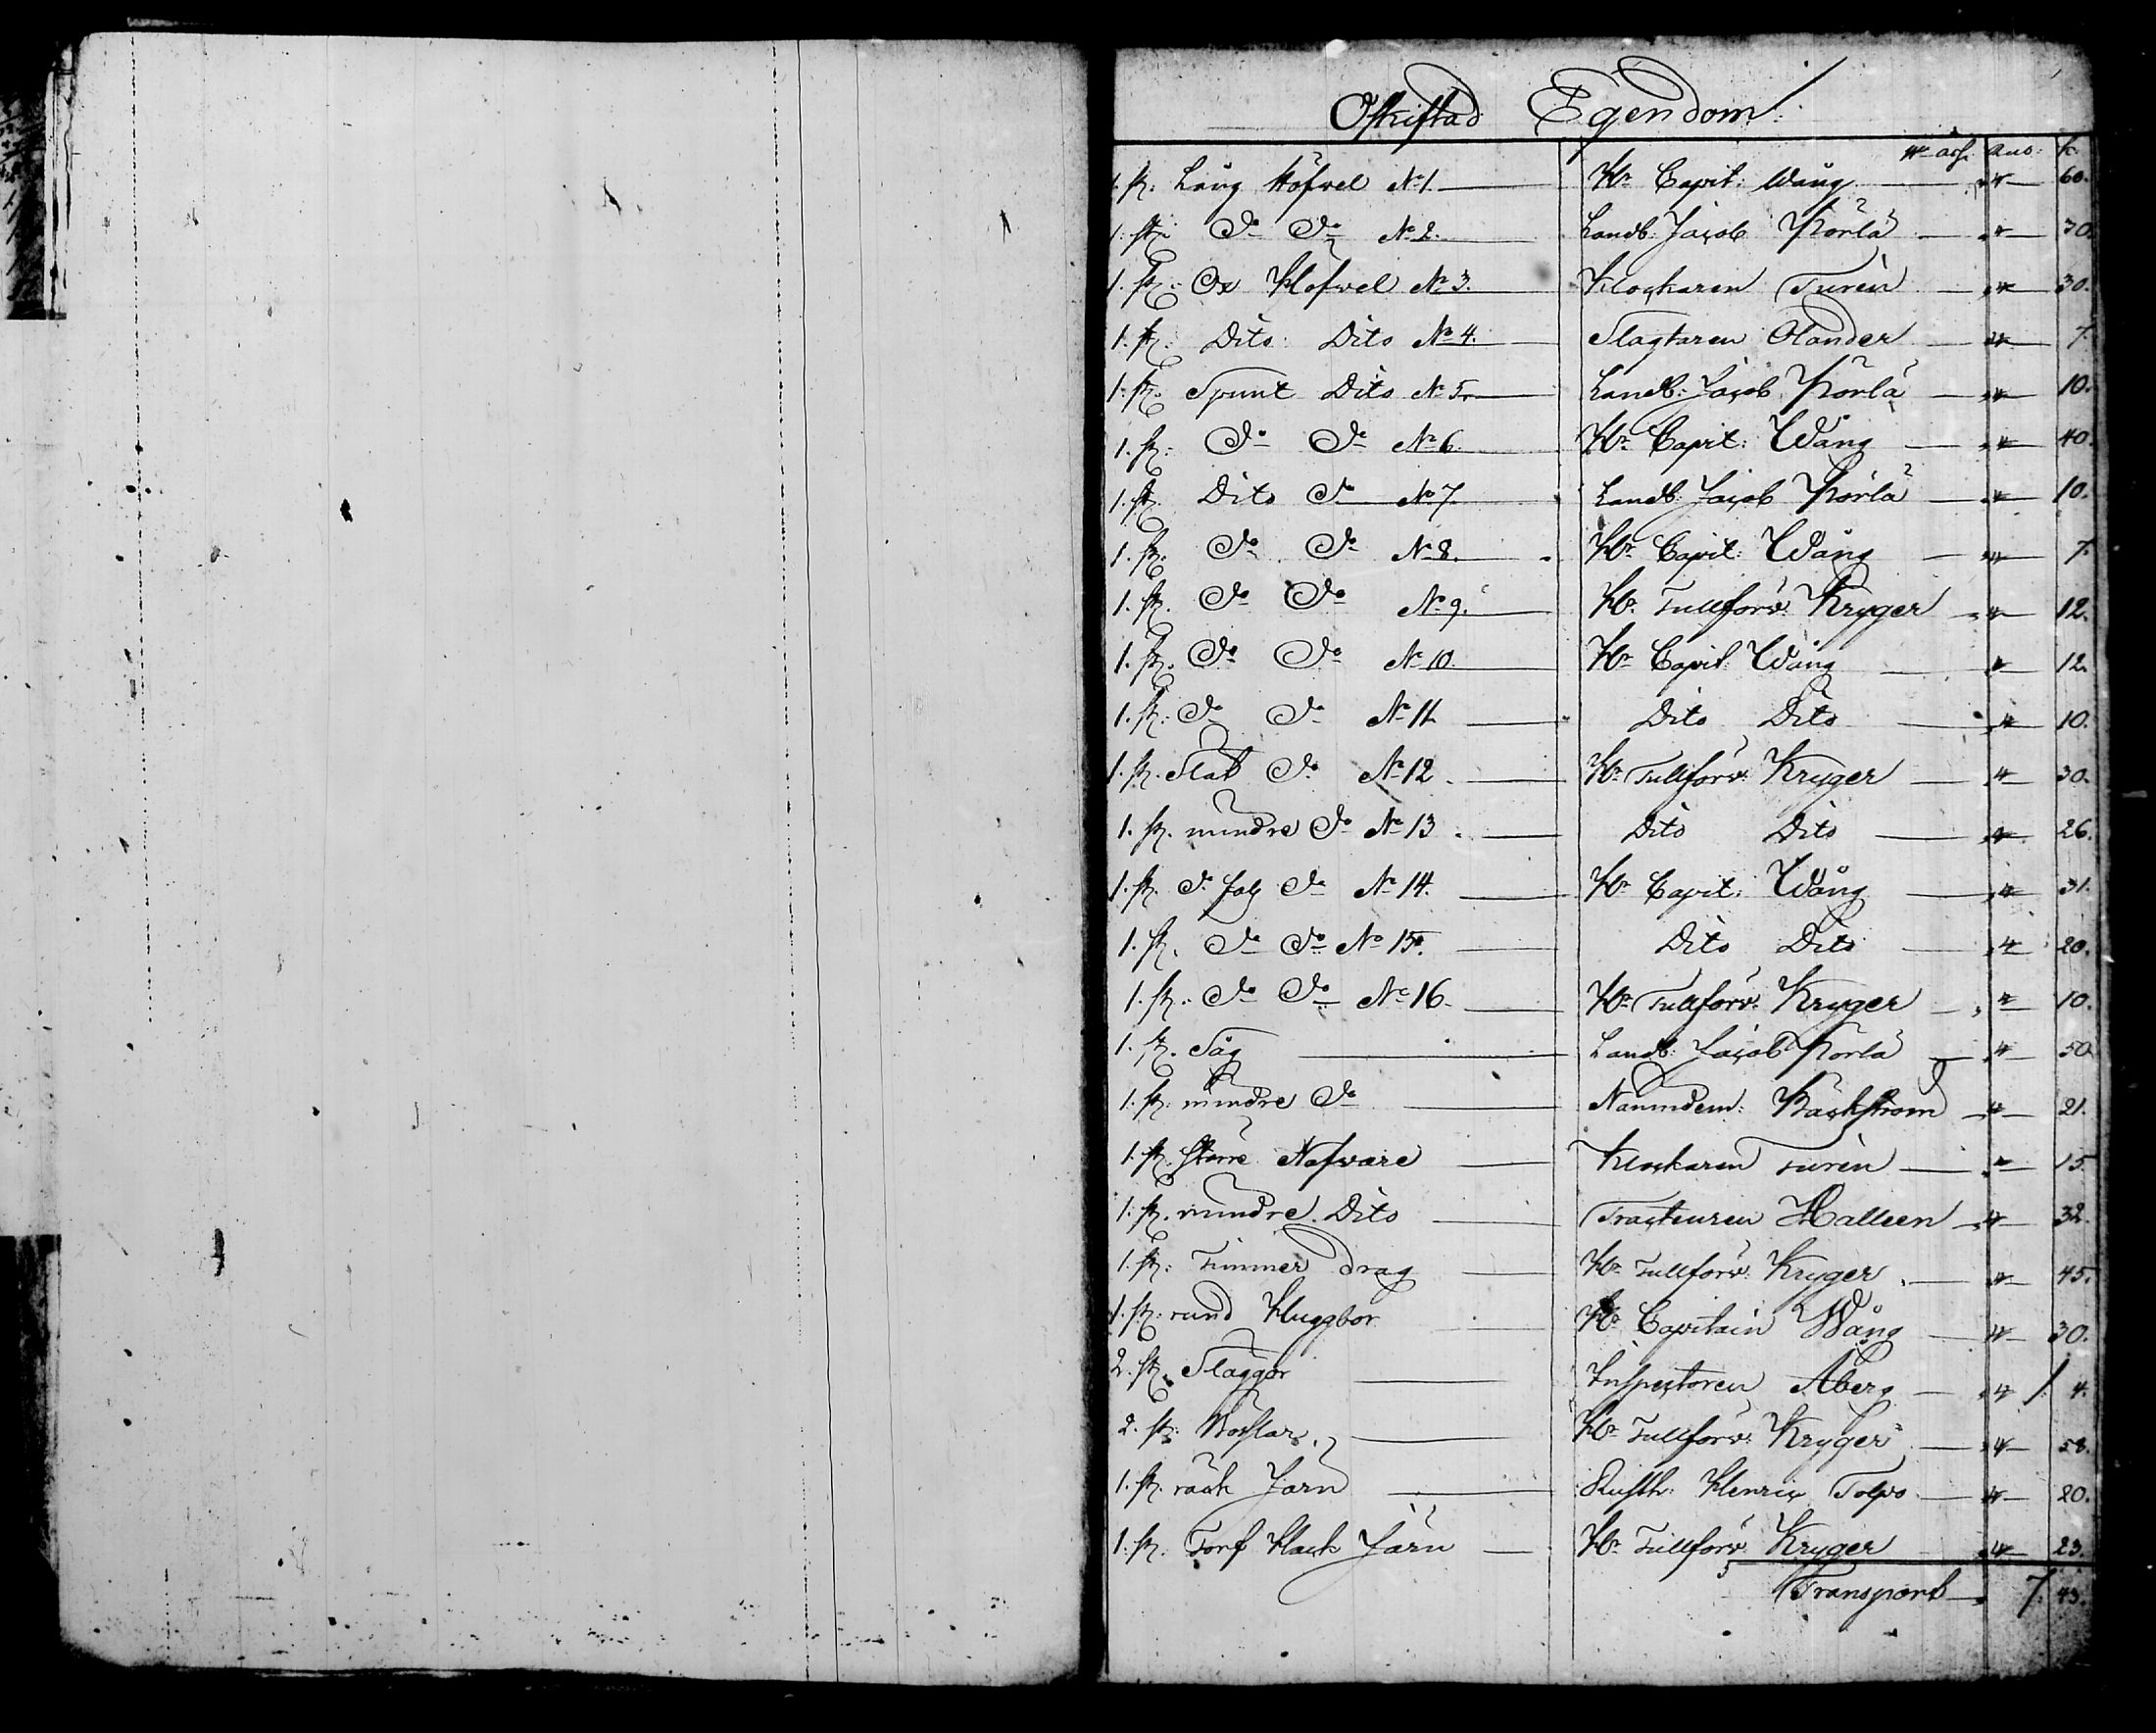 Oskiftad Egendom
Ass: Rub: k:
1. st: Lång Höfvel No 1. Hr Capit: Wång 60.
1. st: Do Do No 2. Landb: Jacob Pörlä 30.
1. st: Ox Höfvel No 3. Klockaren Turén 30.
1. st: Dito Dito No 4. Slagtaren Olander 7.
1. st: Spunt Dito No 5. Landb: Jacob Pörlä 10.
1. st: Do Do No 6. Hr Capit: Wång 40.
1. st: Dito Do No 7. Landb: Jacob Pörlä 10.
1. st: Do Do No 8. Hr Capit: Wång 7.
1. st. Do Do No 9. Hr Tullförv: Kryger 12.
1. st. Do Do No 10. Hr Capit: Wång 12.
1. st: Do Do No 11. Dito Dito 10.
1. st. Slät Do No 12. Hr Tullförv: Kryger 30.
1. st. mindre Do No 13. Dito Dito 26.
1. st. Do Do No 14. Hr Capit: Wång 31.
1. st. Do Do No 15. Dito Dito 20.
1. st. Do Do No 16. Hr Tullförv: Kryger 10.
1. st. Såg Landb: Jacob Pörlä 50
1. st: mindre Do Nämndem: Bäckström 21.
1. st. större Nafvare Klockaren Turén 15
1. st. mindre Dito Tracteuren Halleen 32.
1. st: Timmer drag Hr Tullförv: Kryger 45.
1. st: rund Huggbor Hr Capitain Wång 30.
2. st. Släggor Inspectoren Åberg 1. 4.
2. st: Hr Tullförv: Kryger 58.
1. st. räck Järn Rusth: Henric Tolpo 20.
1. st. Torf Hack Järn Hr Tullförv: Kryger 23.
Transport 7. 43.